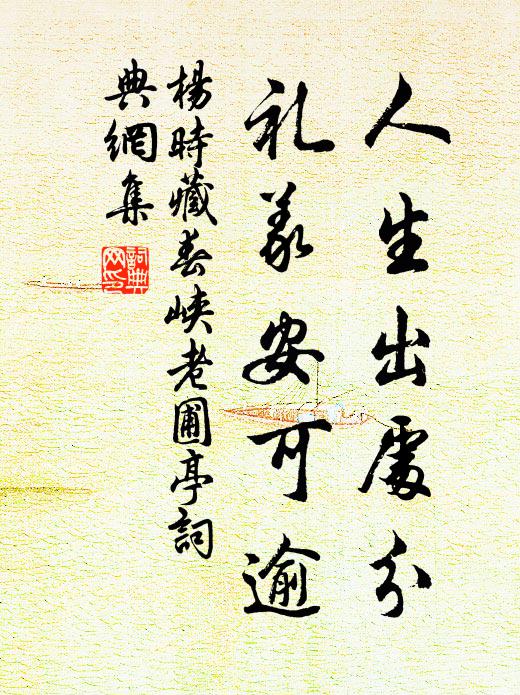 人生出處分
礼義安可逾
楊時藏春峽老圃亭詞
典網集
詞典網印